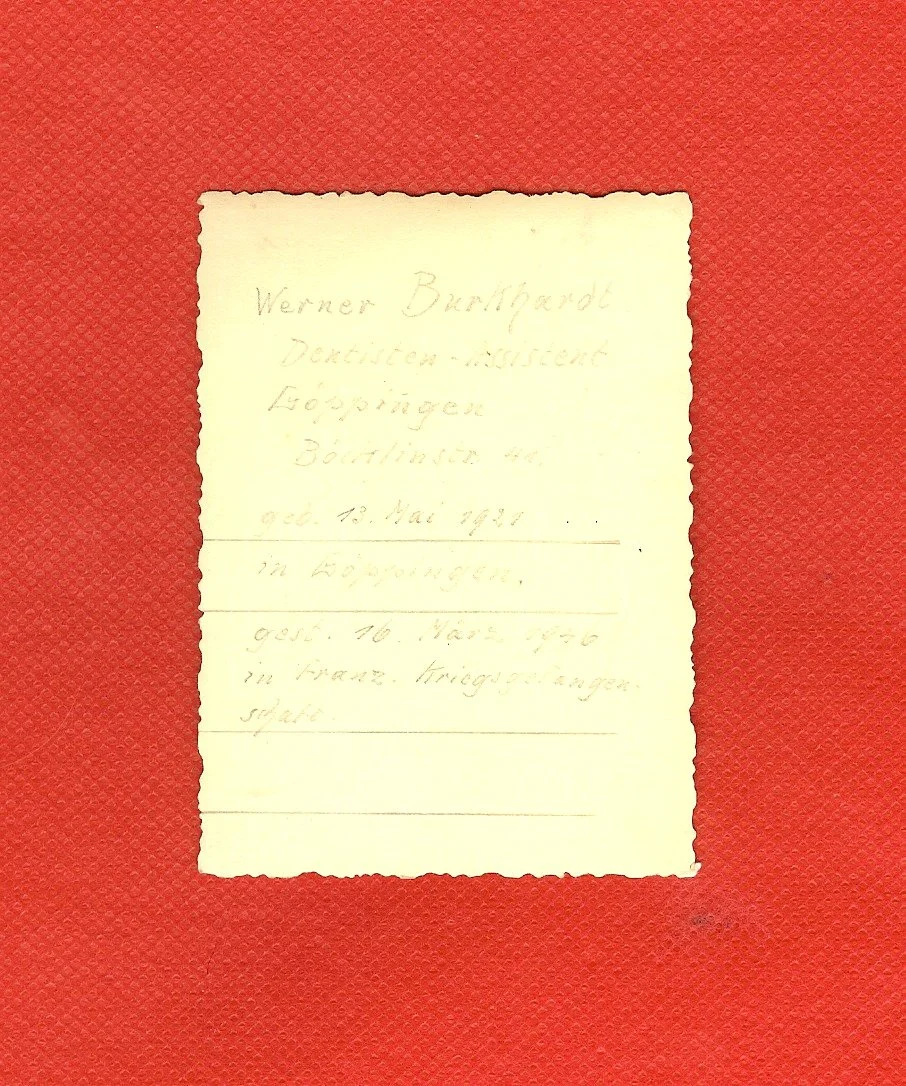 Werner Burkhardt
Dentisten-Assistent
Göppingen
geb. 13. Mai 1921
in Göppingen.
gest. 16. März 1946
in Franz. Kriegsgefangen-
schaft.